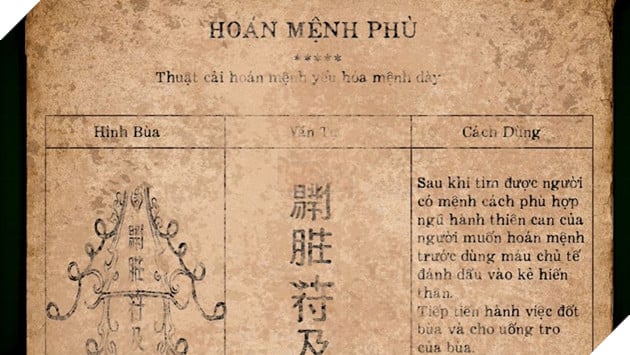 HOÁN MỆNH PHÙ
*****
Thuật cải hoán mệnh yếu hóa mệnh dày
Hình Bùa
Văn Tự
Cách Dùng
符
及
Sau khi tìm được người
có mệnh cách phù hợp
ngũ hành thiên can của
người muốn hoán mệnh
trước dùng máu chủ tế
đánh dấu vào kẻ hiến
thân.
Tiếp tiến hành việc đốt
bùa và cho uống tro
của bùa.